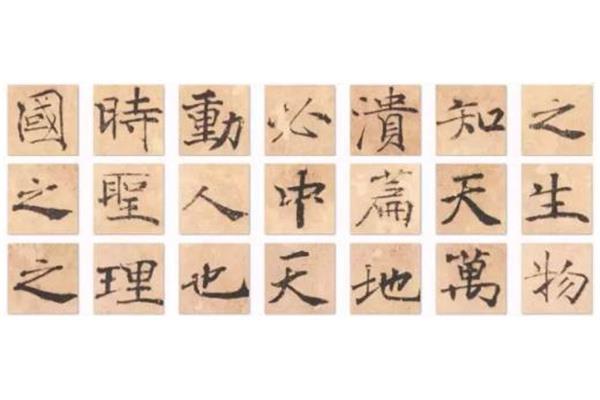 國時動必潰知之
之聖人中篇天生
之理也天地萬物